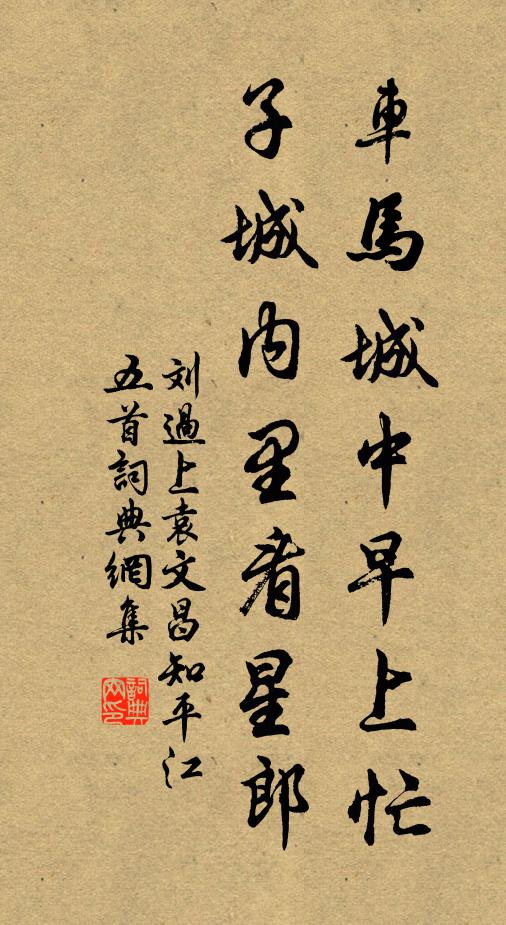 車馬城中早上忙
子城内里看星郎
刘過上袁文昌知平江
五首詞典網集
詞典网印